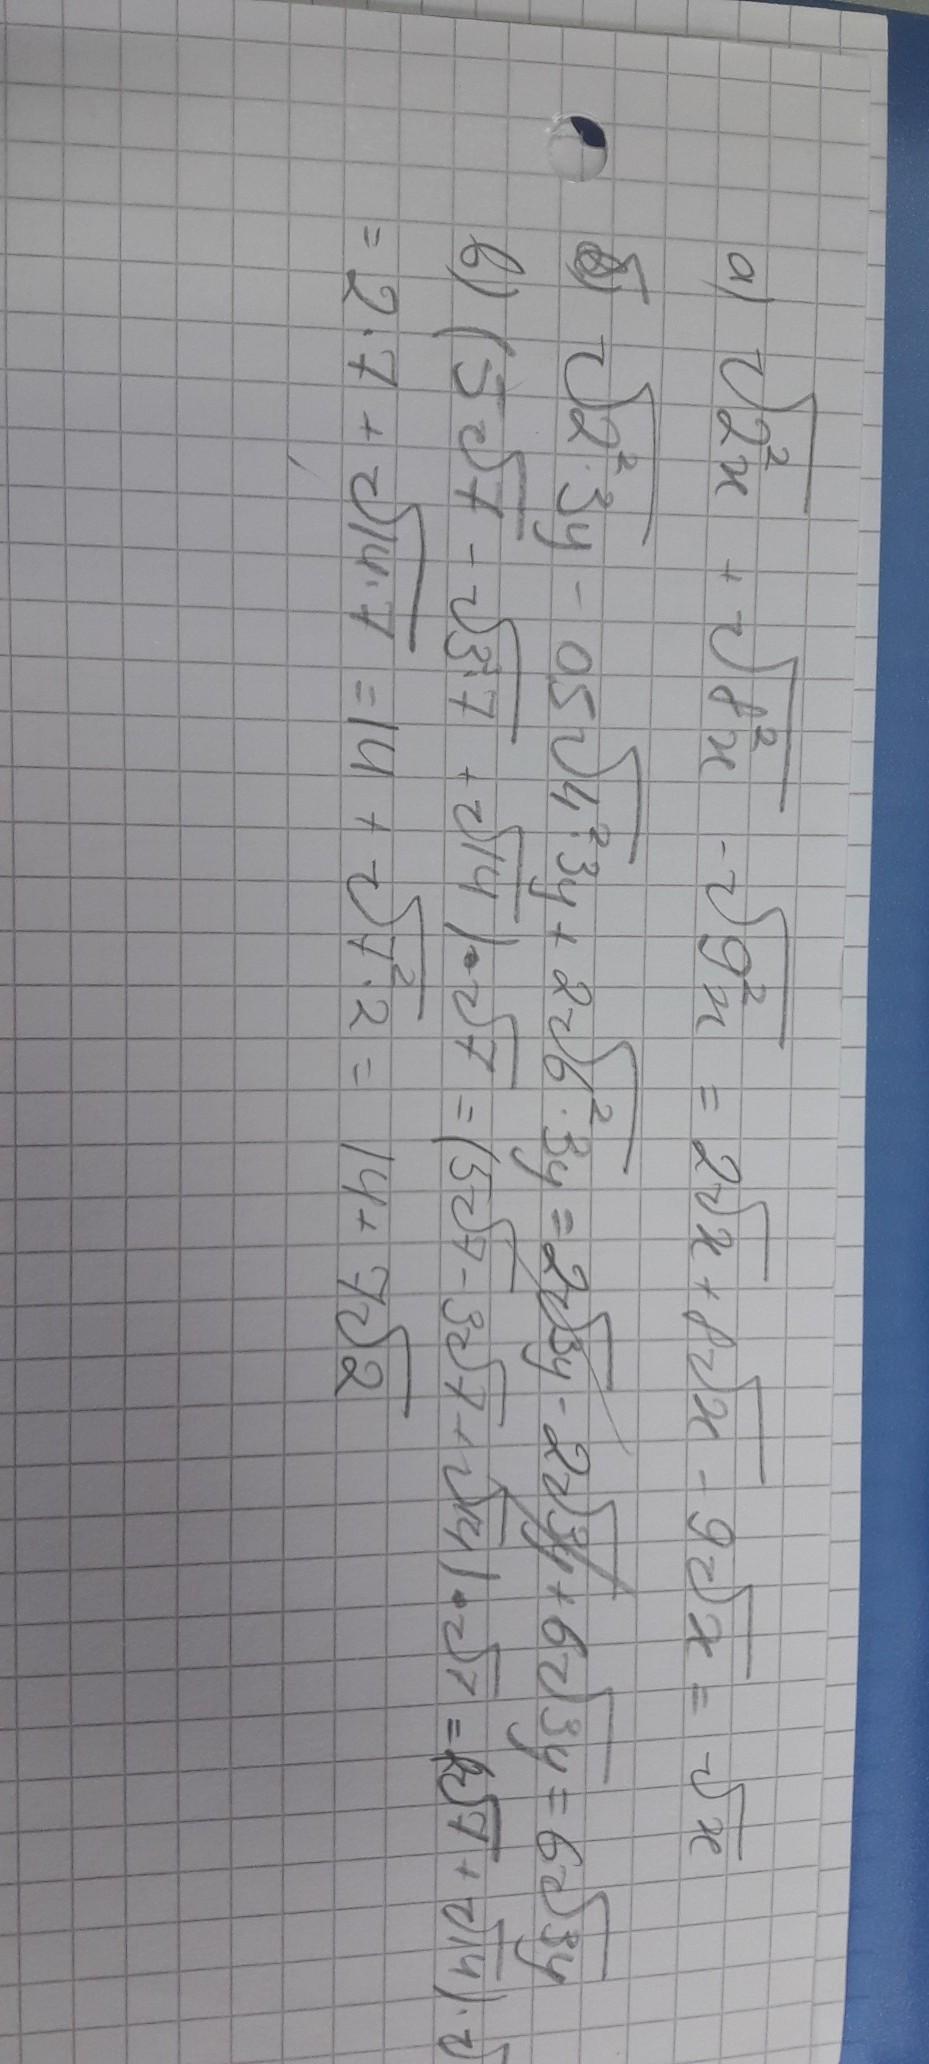 а) √2²x + √8²x - √9²x = 2√x + 8√x - 9√x = √x
б) √2²·3y - 05√4²·3y + 2√6²·3y = 2√3y - 2√3y + 6√3y = 6√3y
в) (5√7 - √3²·7 + √14)·√7 = (5√7 - 3√7 + √14)·√7 = (2√7 + √14)·√
= 2·7 + √14·7 = 14 + √7²·2 = 14 + 7√2